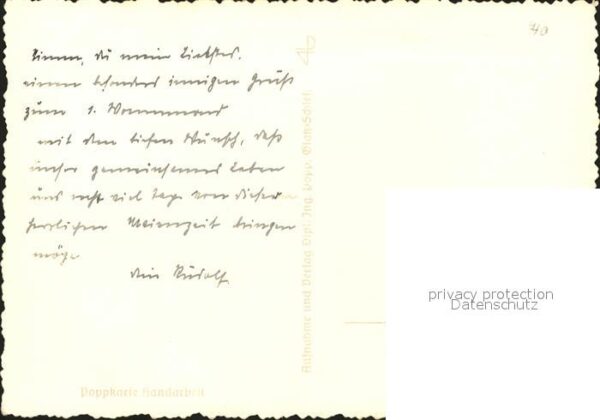 du mein Liebstes,
einen besonders innigen Gruß
zum 1.
mit dem tiefen Wunsch, daß
unser gemeinsames Leben
uns recht viel Tage von dieser
herrlichen Maienzeit bringen
möge
dein Rudolf.
Poppkarte Handarbeit
Aufnahme und Verlag Dipl. Ing. Popp, Glatz-Schles.
40
privacy protection
Datenschutz